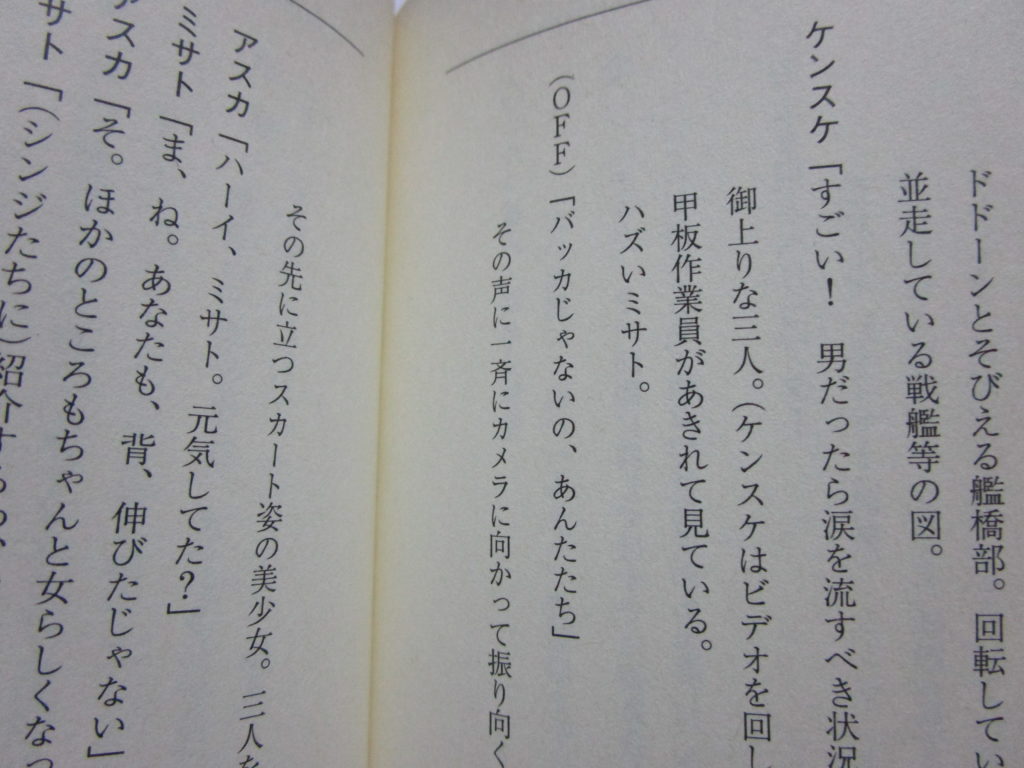 ドドーンとそびえる艦橋部。回転してい
並走している戦艦等の図。
ケンスケ「すごい！　男だったら涙を流すべき状況
御上りな三人。（ケンスケはビデオを回し
甲板作業員があきれて見ている。
ハズいミサト。
（OFF）「バッカじゃないの、あんたたち」
その声に一斉にカメラに向かって振り向く
その先に立つスカート姿の美少女。三人を
アスカ「ハーイ、ミサト。元気してた？」
ミサト「ま、ね。あなたも、背、伸びたじゃない」
アスカ「そ。ほかのところもちゃんと女らしくなっ
サト「（シンジたちに）紹介するわ、